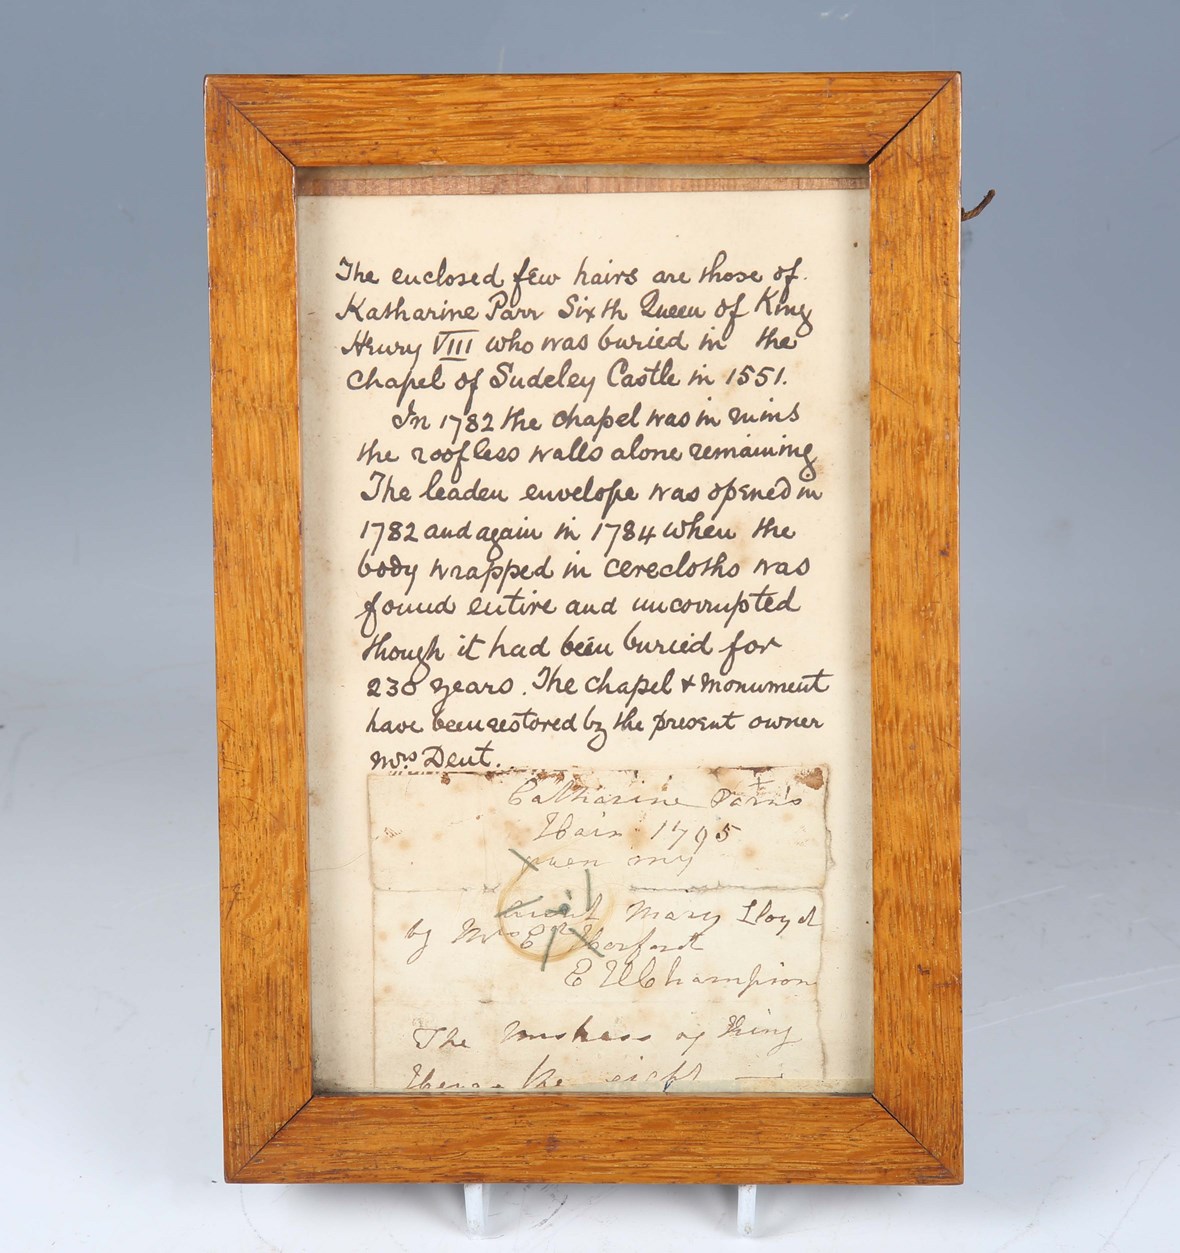 The enclosed few hairs are those of
Katharine Parr Sixth Queen of King
Henry VIII who was buried in the
chapel of Sudeley Castle in 1551.
In 1782 the chapel was in ruins
the roofless walls alone remaining
The leaden envelope was opened in
1782 and again in 1784 when the
body wrapped in cerecloths was
found entire and uncorrupted
though it had been buried for
230 years. The chapel & monument
have been restored by the present owner
Mrs Dent.
Catharine Parr's
Hair 1795
given my
aunt Mary Lloyd
by Mrs
E Champion
The of King
the eight